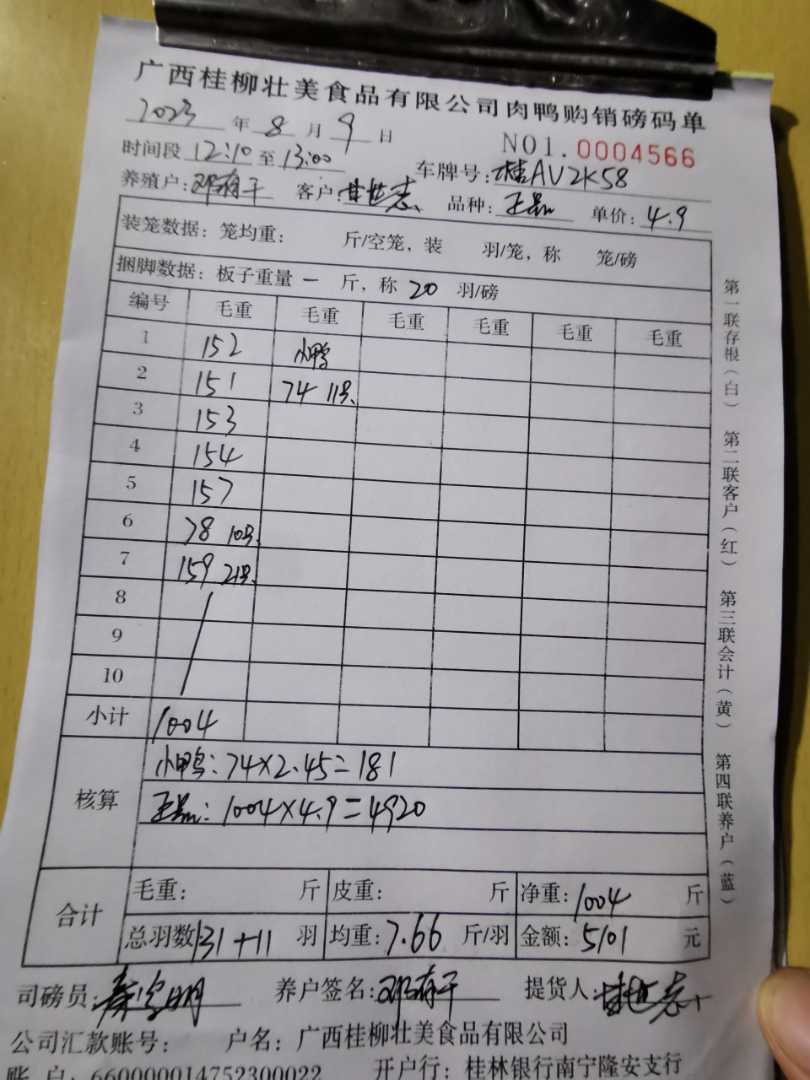 广西桂柳壮美食品有限公司肉鸭购销磅码单
2023年8月9日 NO1.0004566
时间段 12:10至13:00 车牌号:桂AV2K58
养殖户:邓有干 客户:甘世志 品种:正品 单价:4.9
装笼数据:笼均重: 斤/空笼,装 羽/笼,称 笼/磅
捆脚数据:板子重量 一 斤,称 20 羽/磅
编号 毛重 毛重 毛重 毛重 毛重 毛重
1 152 小鸭
2 151 74 11只
3 153
4 154
5 157
6 78 10只
7 159 21只
8
9
10
小计 1004
核算 小鸭:74×2.45=181
正品:1004×4.9=4920
合计 毛重: 斤 皮重: 斤 净重:1004 斤
总羽数131+11 羽 均重:7.66 斤/羽 金额:5101 元
司磅员: 养户签名:邓有干 提货人:甘世志
公司汇款账号: 户名:广西桂柳壮美食品有限公司
账 户:660000014752300022 开户行:桂林银行南宁隆安支行
第一联存根(白) 第二联客户(红) 第三联会计(黄) 第四联养户(蓝)